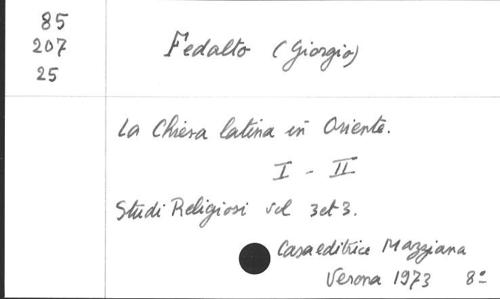 85
207
25
Fedalto (Giorgio)
La Chiesa latina in Oriente.
I - II
Studi Religiosi vol 3 et 3.
Casa editrice Mazziana
Verona 1973 8°